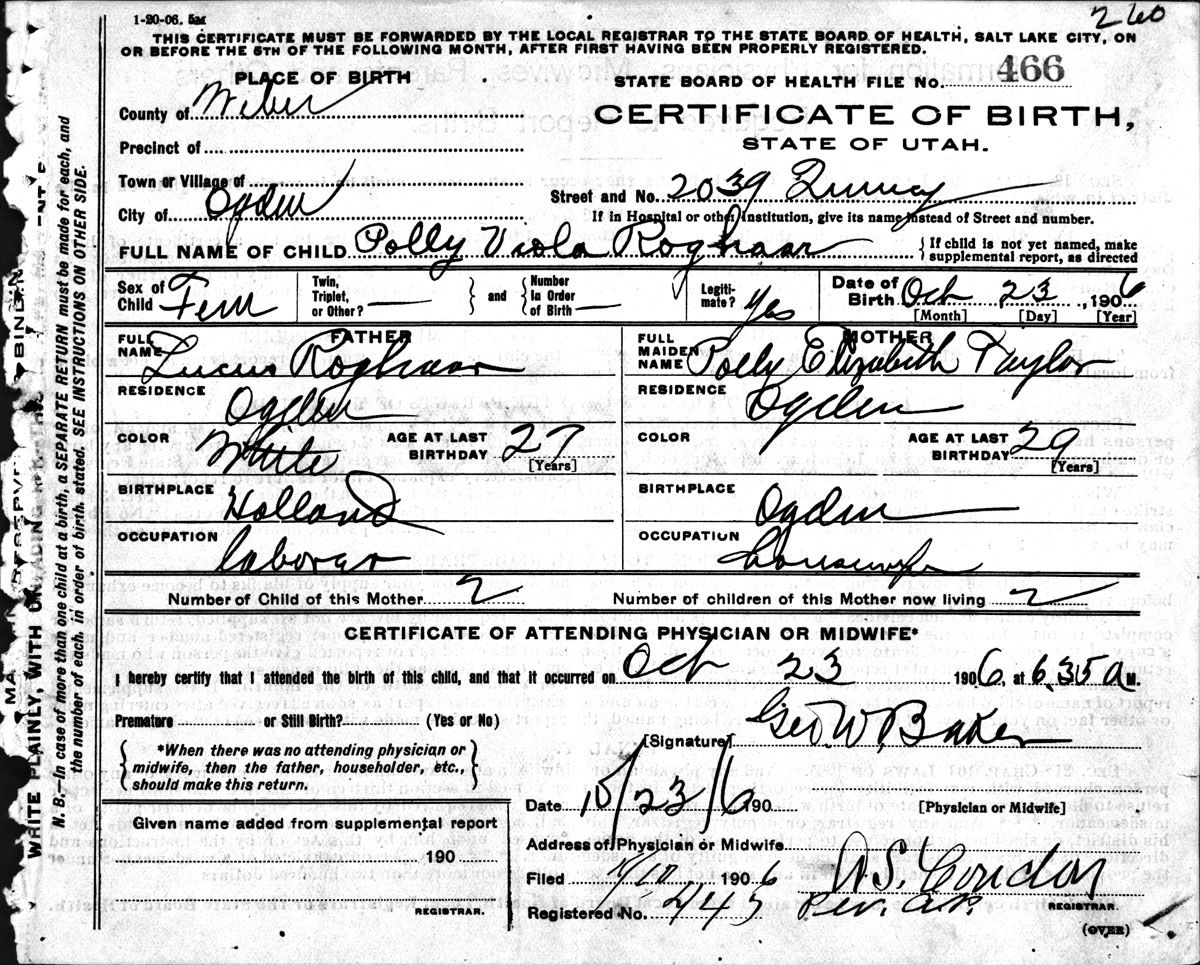 1-20-06. 5M
260
THIS CERTIFICATE MUST BE FORWARDED BY THE LOCAL REGISTRAR TO THE STATE BOARD OF HEALTH, SALT LAKE CITY, ON
OR BEFORE THE 5TH OF THE FOLLOWING MONTH, AFTER FIRST HAVING BEEN PROPERLY REGISTERED.
PLACE OF BIRTH
STATE BOARD OF HEALTH FILE No. 466
County of Weber
CERTIFICATE OF BIRTH,
Precinct of
STATE OF UTAH.
Town or Village of
Street and No. 2039 Quincy
City of Ogden
If in Hospital or other Institution, give its name instead of Street and number.
FULL NAME OF CHILD Polly Viola Roghaar
{ If child is not yet named, make
supplemental report, as directed
Sex of Child Fem
Twin, Triplet, or Other? —
and
Number in Order of Birth —
Legiti-mate? Yes
Date of Birth Oct 23, 1906
[Month] [Day] [Year]
FATHER
FULL NAME Lucus Roghaar
RESIDENCE Ogden
COLOR White
AGE AT LAST BIRTHDAY 27
[Years]
BIRTHPLACE Holland
OCCUPATION laborer
MOTHER
FULL MAIDEN NAME Polly Elizabeth Taylor
RESIDENCE Ogden
COLOR
AGE AT LAST BIRTHDAY 29
[Years]
BIRTHPLACE Ogden
OCCUPATION housewife
Number of Child of this Mother 2
Number of children of this Mother now living 2
CERTIFICATE OF ATTENDING PHYSICIAN OR MIDWIFE*
I hereby certify that I attended the birth of this child, and that it occurred on Oct 23 1906, at 6.35 a M.
Premature or Still Birth? (Yes or No)
[Signature] Geo. W. Baker
{ *When there was no attending physician or
midwife, then the father, householder, etc.,
should make this return. }
Date 10/23/6 190
[Physician or Midwife]
Given name added from supplemental report
190
REGISTRAR.
Address of Physician or Midwife
Filed 1906
REGISTRAR.
Registered No. 445
(OVER)
WRITE PLAINLY, WITH
N. B.—In case of more than one child at a birth, a SEPARATE RETURN must be made for each, and
the number of each, in order of birth, stated. SEE INSTRUCTIONS ON OTHER SIDE.